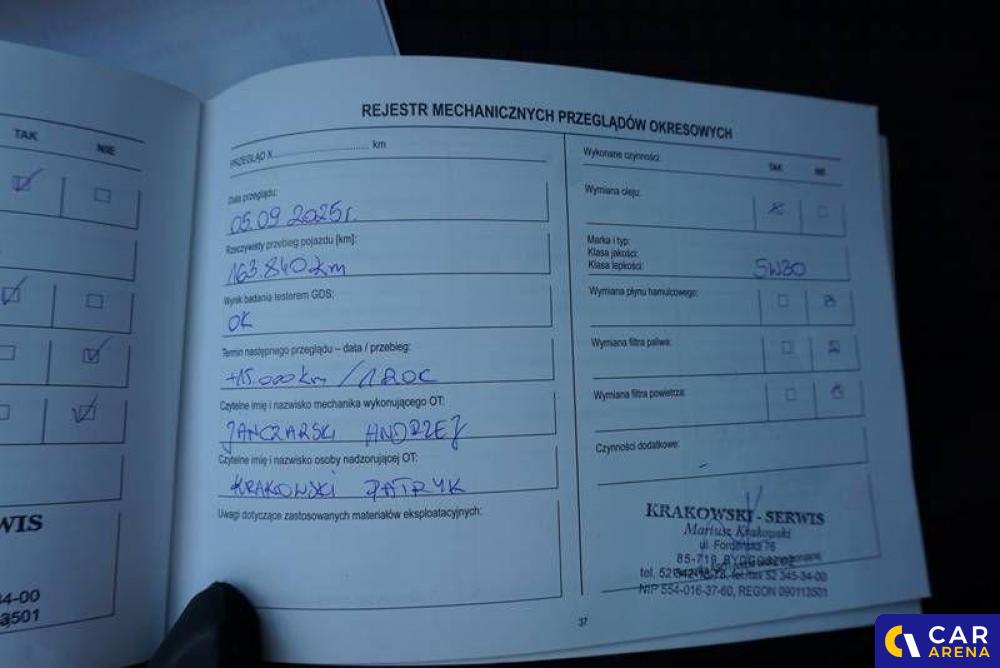 TAK NIE
WIS
4-00
3501
REJESTR MECHANICZNYCH PRZEGLĄDÓW OKRESOWYCH
PRZEGLĄD X.............................. km
Data przeglądu:
05.09.2025r.
Rzeczywisty przebieg pojazdu [km]:
163.840 km
Wynik badania testerem GDS:
OK
Termin następnego przeglądu – data / przebieg:
+15.000km / 1 ROK
Czytelne imię i nazwisko mechanika wykonującego OT:
JANCZARSKI ANDRZEJ
Czytelne imię i nazwisko osoby nadzorującej OT:
KRAKOWSKI PATRYK
Uwagi dotyczące zastosowanych materiałów eksploatacyjnych:
Wykonane czynności:
TAK NIE
Wymiana oleju:
Marka i typ:
Klasa jakości:
Klasa lepkości: 5W30
Wymiana płynu hamulcowego:
Wymiana filtra paliwa:
Wymiana filtra powietrza:
Czynności dodatkowe:
–
KRAKOWSKI - SERWIS
Mariusz Krakowski
ul. Fordońska 76
85-719 BYDGOSZCZ
tel. 52 342-18-78, tel./fax 52 345-34-00
NIP 554-016-37-60, REGON 090113501
37
CAR
ARENA